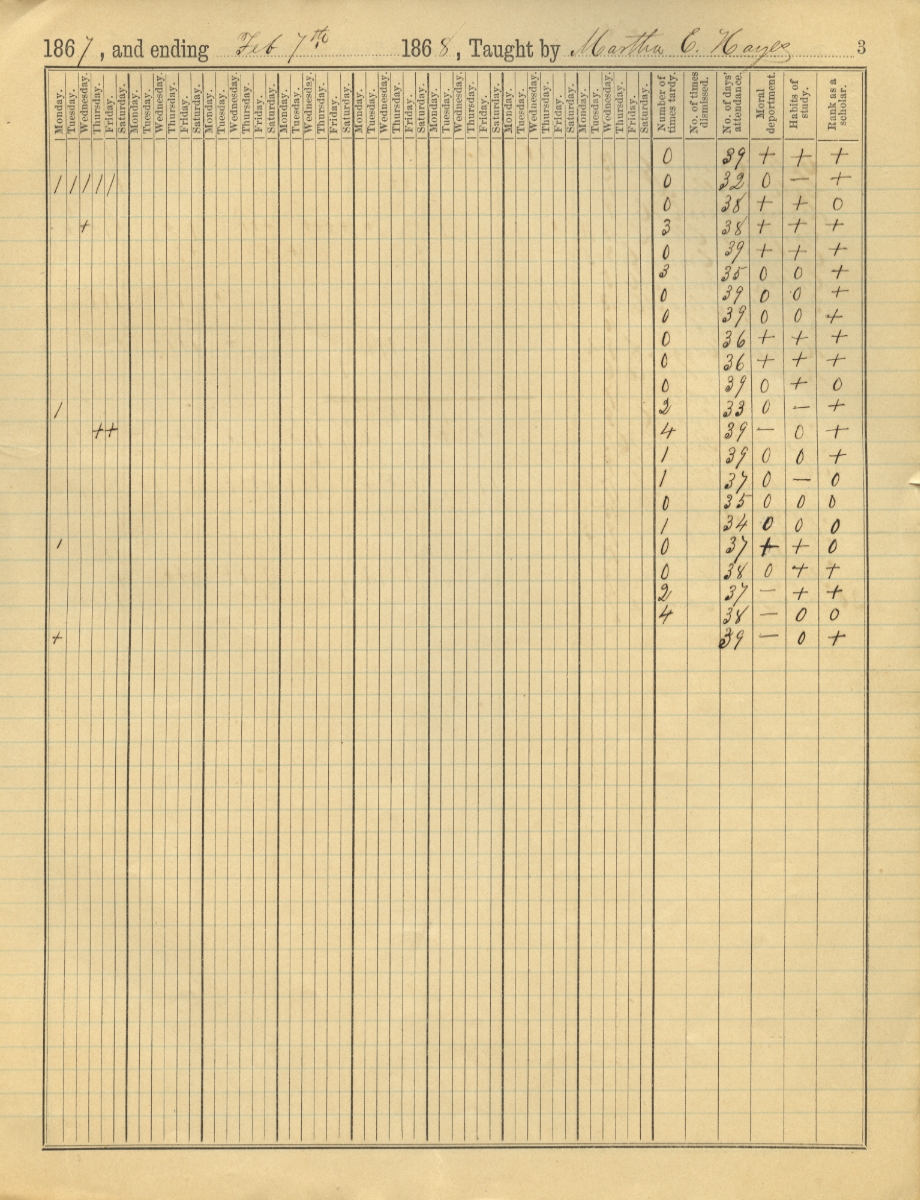 1867, and ending Feb 7th 1868, Taught by Martha E. Hayes 3
Monday. Tuesday. Wednesday. Thursday. Friday. Saturday. Monday. Tuesday. Wednesday. Thursday. Friday. Saturday. Monday. Tuesday. Wednesday. Thursday. Friday. Saturday. Monday. Tuesday. Wednesday. Thursday. Friday. Saturday. Monday. Tuesday. Wednesday. Thursday. Friday. Saturday. Monday. Tuesday. Wednesday. Thursday. Friday. Saturday. Monday. Tuesday. Wednesday. Thursday. Friday. Saturday. Monday. Tuesday. Wednesday. Thursday. Friday. Saturday. Number of times tardy. No. of times dismissed. No. of days' attendance. Moral deportment. Habits of study. Rank as a scholar.
0 39 + + +
/ / / / / 0 32 0 – +
0 38 + + 0
+ 3 38 + + +
0 39 + + +
3 35 0 0 +
0 39 0 0 +
0 39 0 0 +
0 36 + + +
0 36 + + +
0 39 0 + 0
/ 2 33 0 – +
+ + 4 39 – 0 +
1 39 0 0 +
1 37 0 – 0
0 35 0 0 0
1 34 0 0 0
/ 0 37 + + 0
0 38 0 + +
2 37 – + +
4 38 – 0 0
+ 39 – 0 +